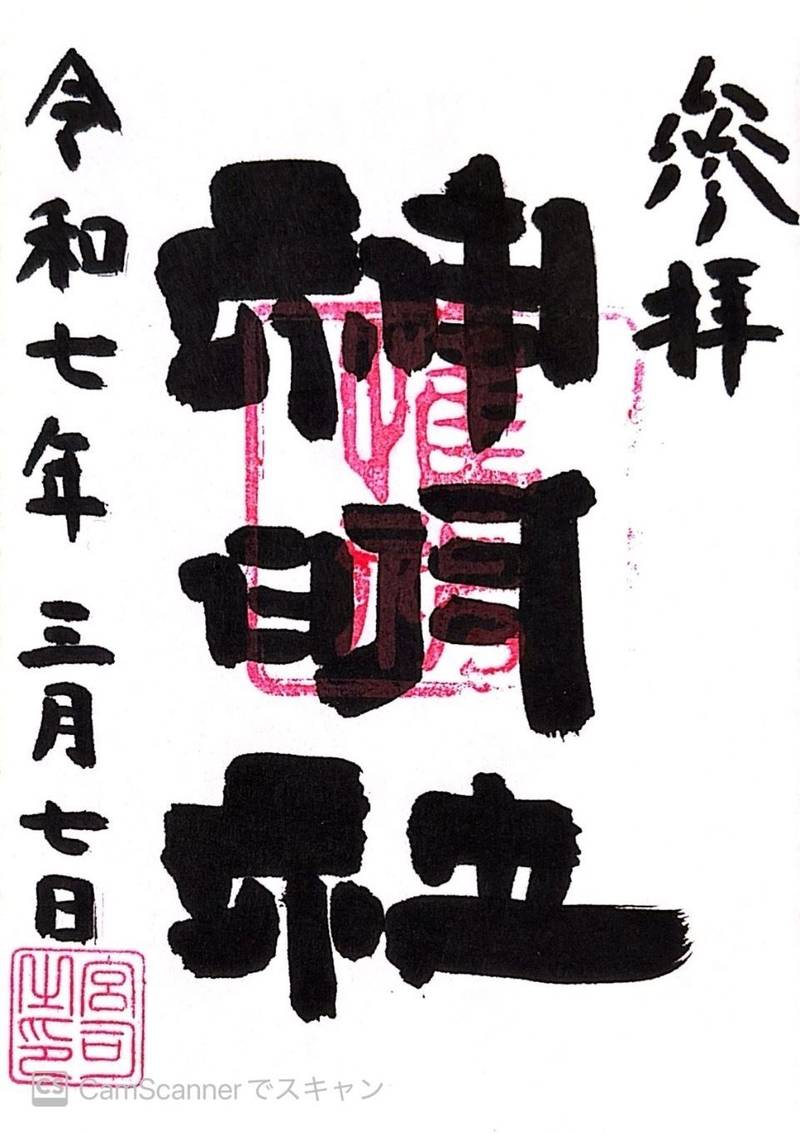 參拝
神明社
令和七年三月七日
宮司之印
CS CamScannerでスキャン